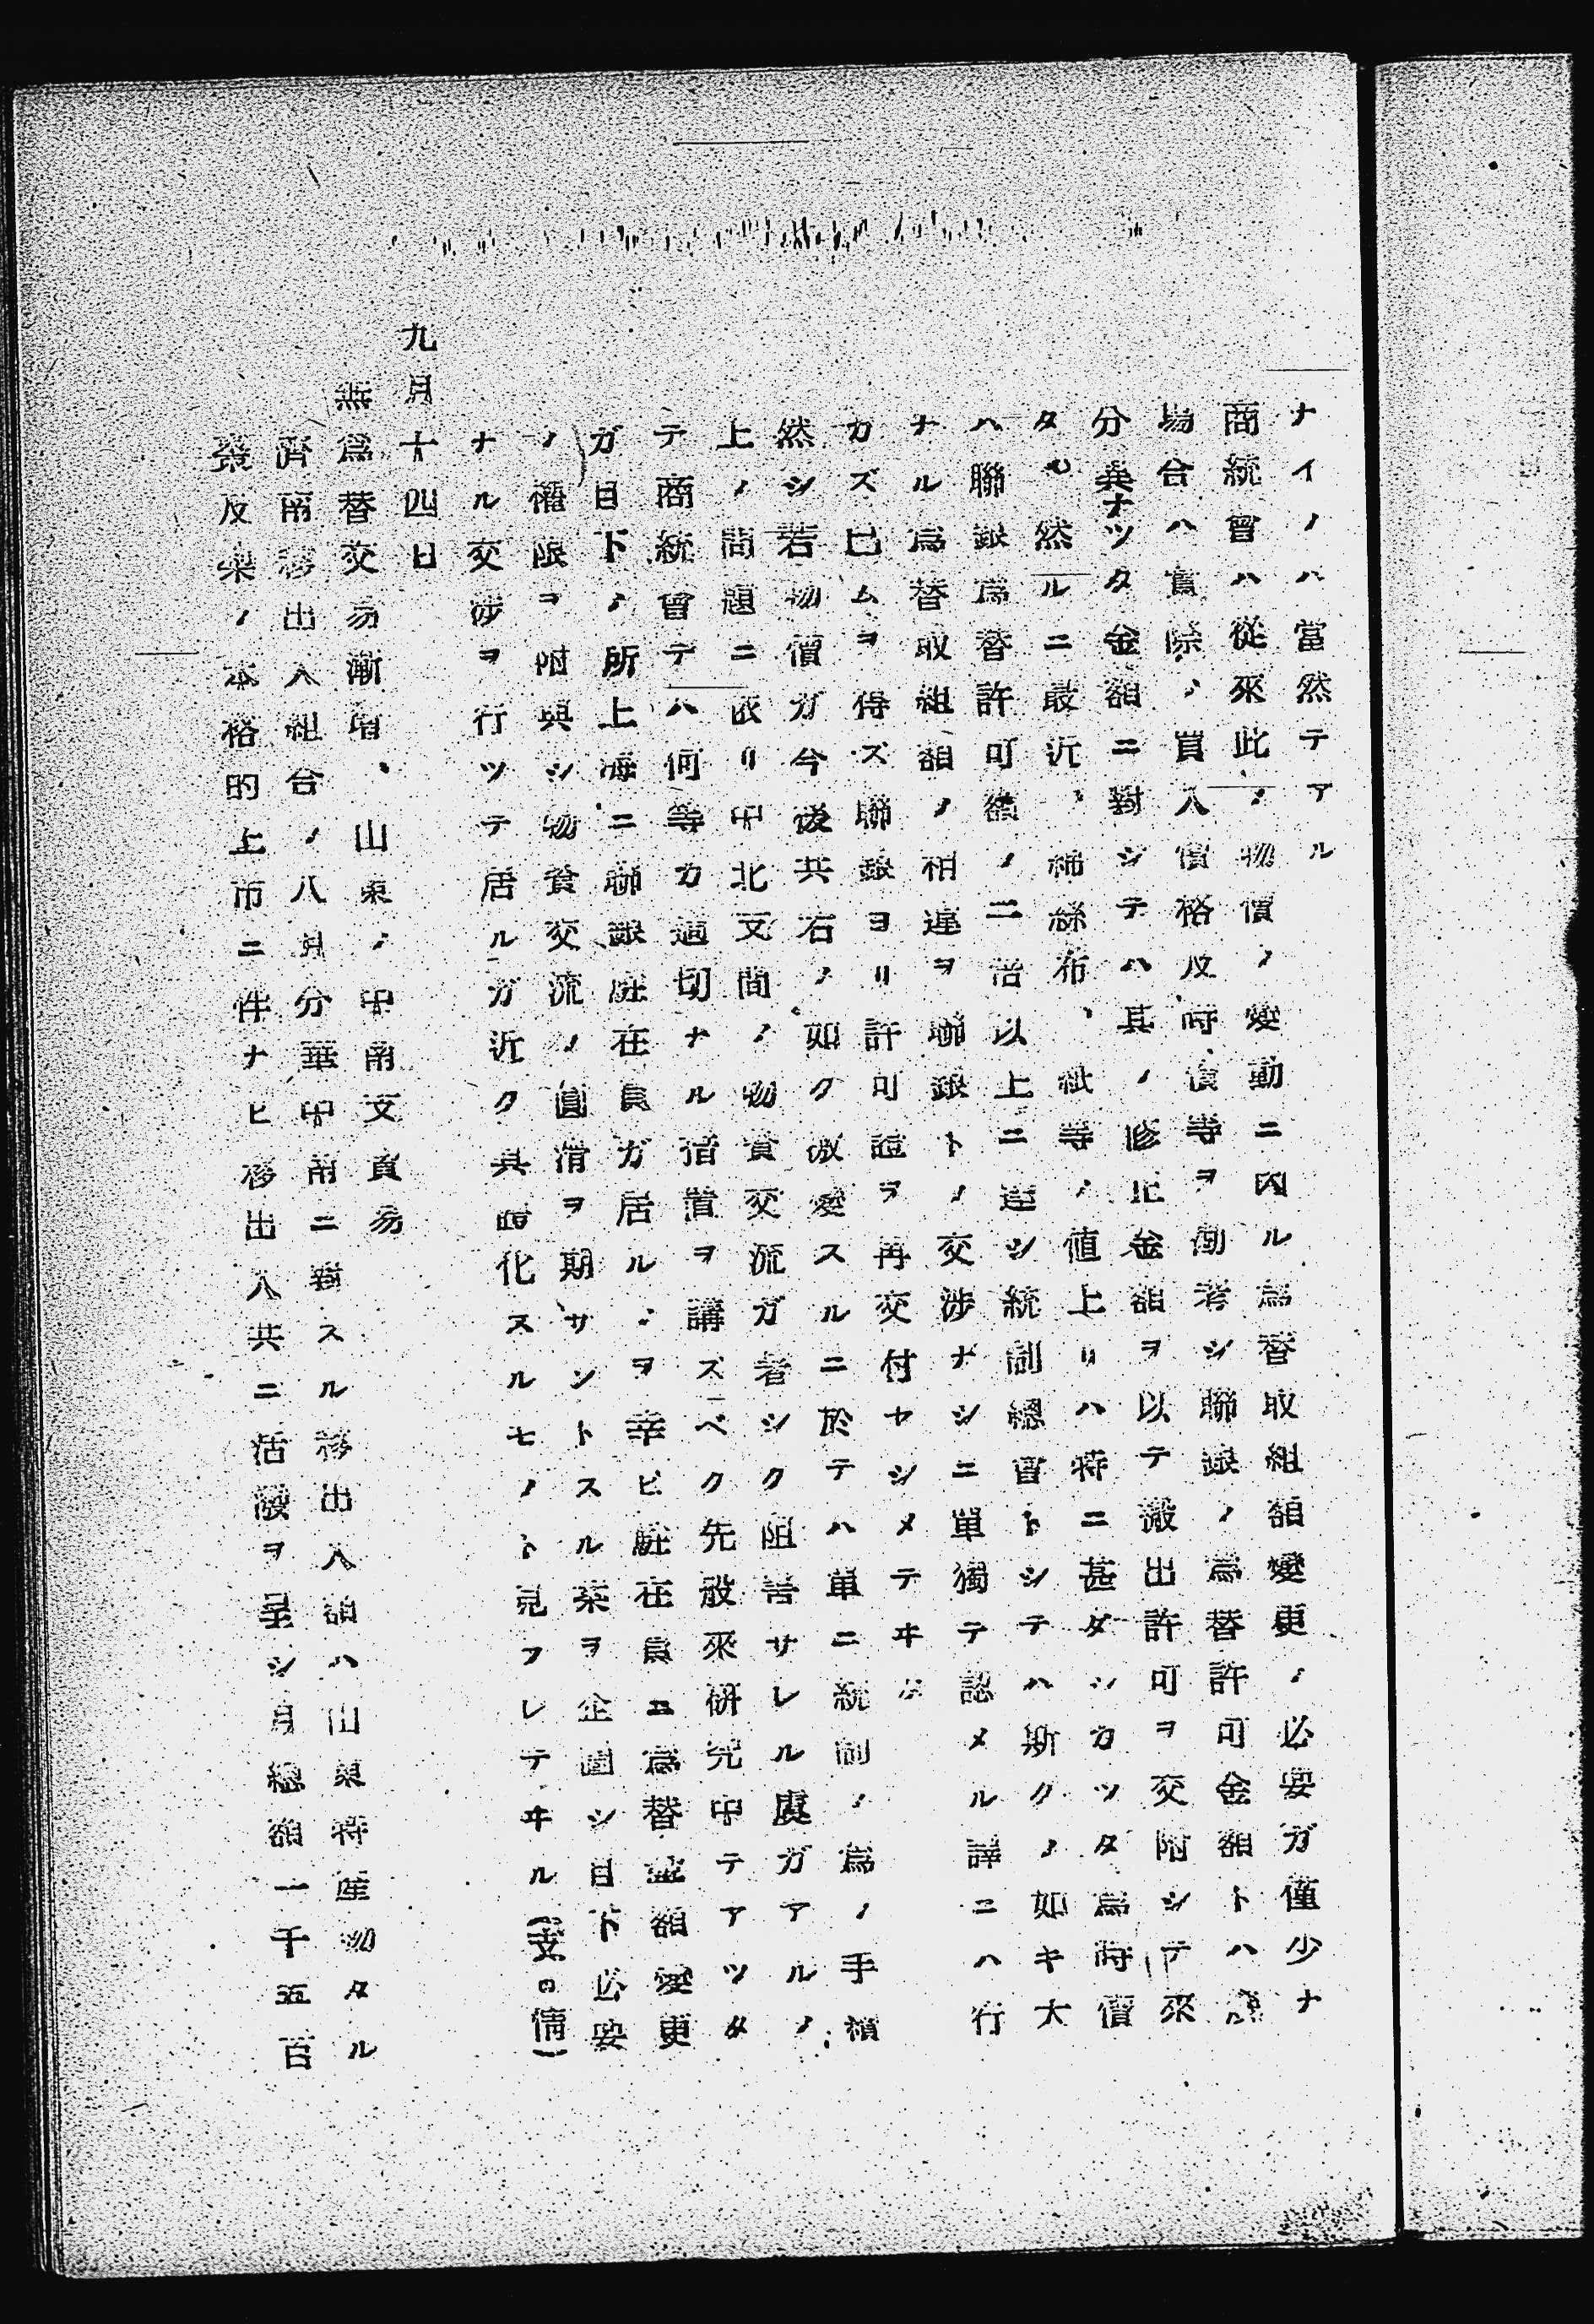 ナイノハ當然テアル
商統會ハ從來此ノ物價ノ變動ニ因ル爲替取組額變更ノ必要ガ僅少ナ
場合ハ實際ノ買入價格及時價等ヲ勘考シ聯銀ノ爲替許可金額トハ
分異ナツタ金額ニ對シテハ其ノ修正金額ヲ以テ搬出許可ヲ交附シテ來
タ。然ルニ最近、綿絲布、紙等ノ値上リハ特ニ甚ダシカツタ爲時價
ハ聯銀爲替許可額ノ二倍以上ニ達シ統制總會トシテハ斯クノ如キ大
ナル爲替取組額ノ相違ヲ聯銀トノ交渉ナシニ單獨テ認メル譯ニハ行
カズ已ムヲ得ズ聯銀ヨリノ許可證ヲ再交付セシメテヰル
然シ若物價ガ今後共右ノ如ク激變スルニ於テハ單ニ統制ノ爲ノ手續
上ノ問題ニ依リ中北支間ノ物資交流ガ著シク阻害サレル虞ガアルノ
テ商統會デハ何等カ適切ナル措置ヲ講ズベク先般來研究中テアツタ
ガ目下ノ所上海ニ聯銀駐在員ガ居ルノヲ幸ヒ駐在員ニ爲替金額變更
ノ權限ヲ附與シ物資交流ノ圓滑ヲ期サントスル案ヲ企圖シ目下必要
ナル交渉ヲ行ツテ居ルガ近ク具體化スルモノト見ラレテヰル(支ロ情)
九月十四日
無爲替交易漸増、山東ノ中南支貿易
濟南移出入組合ノ八月分華中南ニ對スル移出入額ハ山東特産物タル
葉及棗ノ本格的上市ニ伴ナヒ移出入共ニ活潑ヲ呈シ月總額一千五百